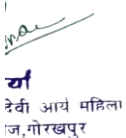 र्या
देवी आर्य महिला
ज,गोरखपुर